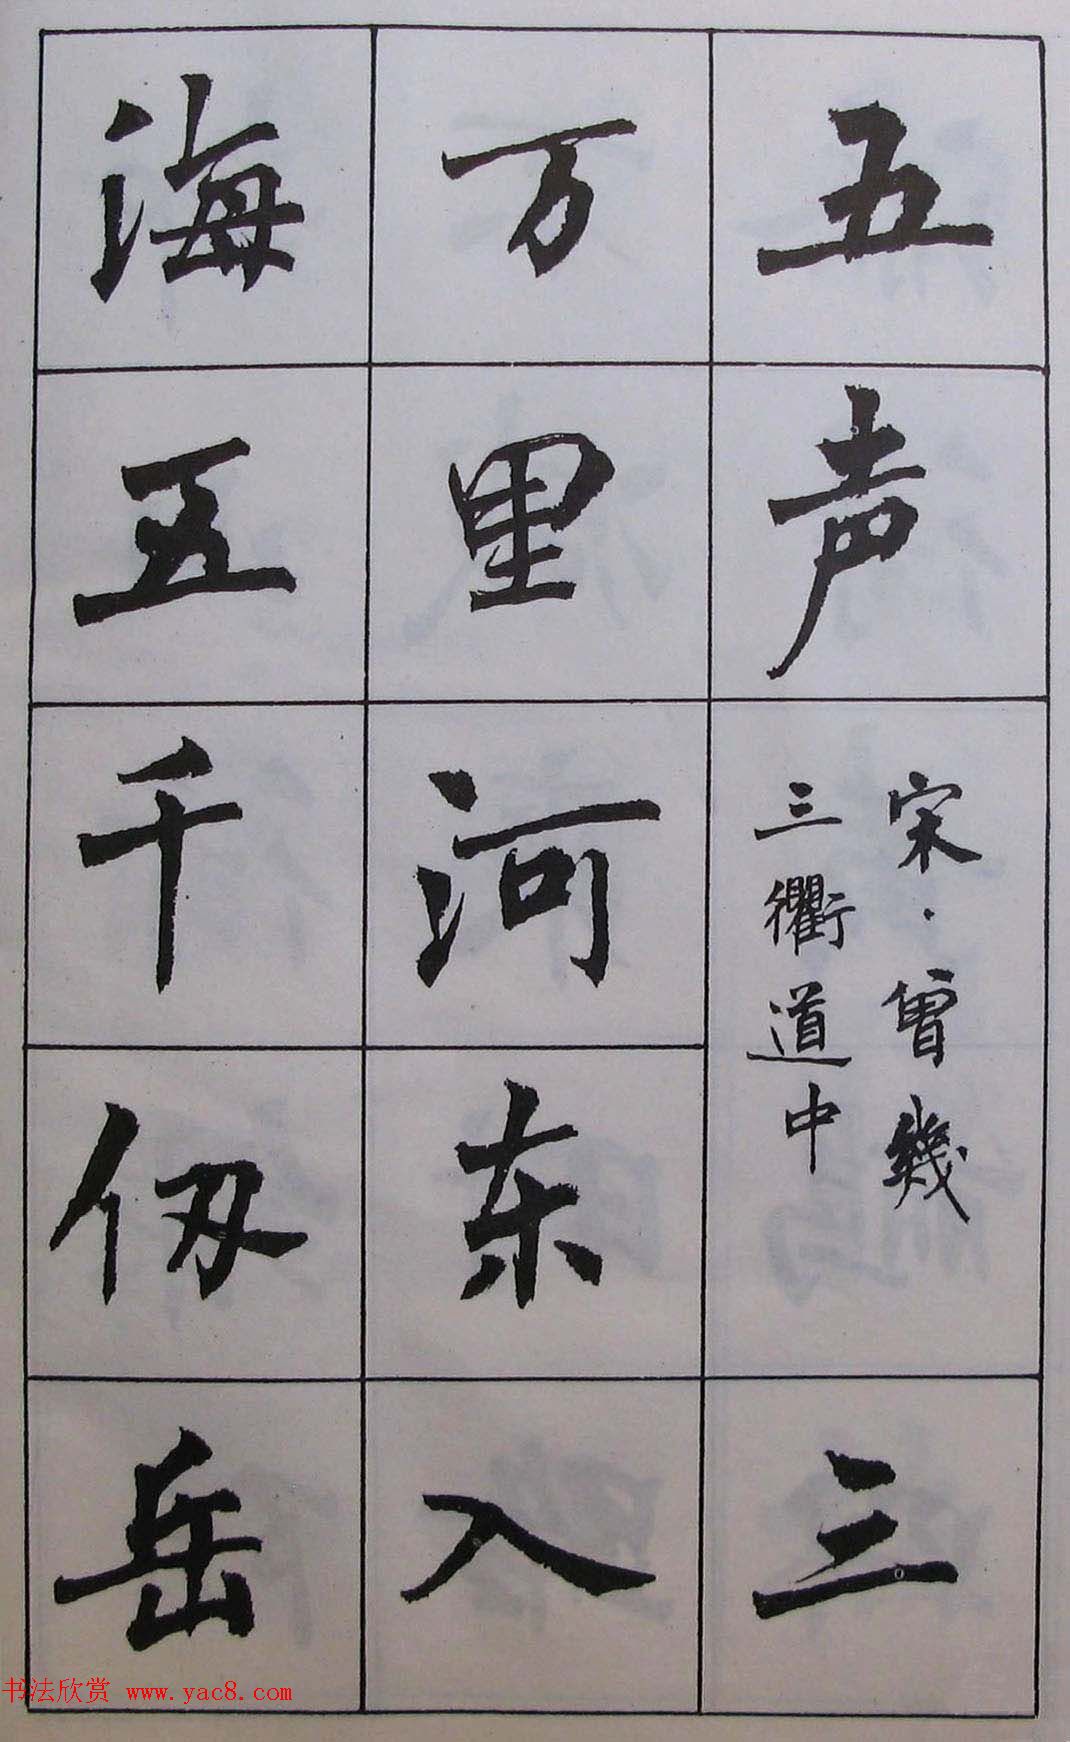 五声
宋·曾幾
三衢道中
三
万里河东入
海五千仞岳
书法欣赏 www.yac8.com